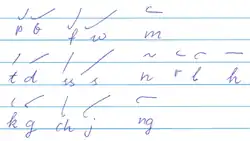 p b f w m
t d ss s n r l h
k g ch j ng